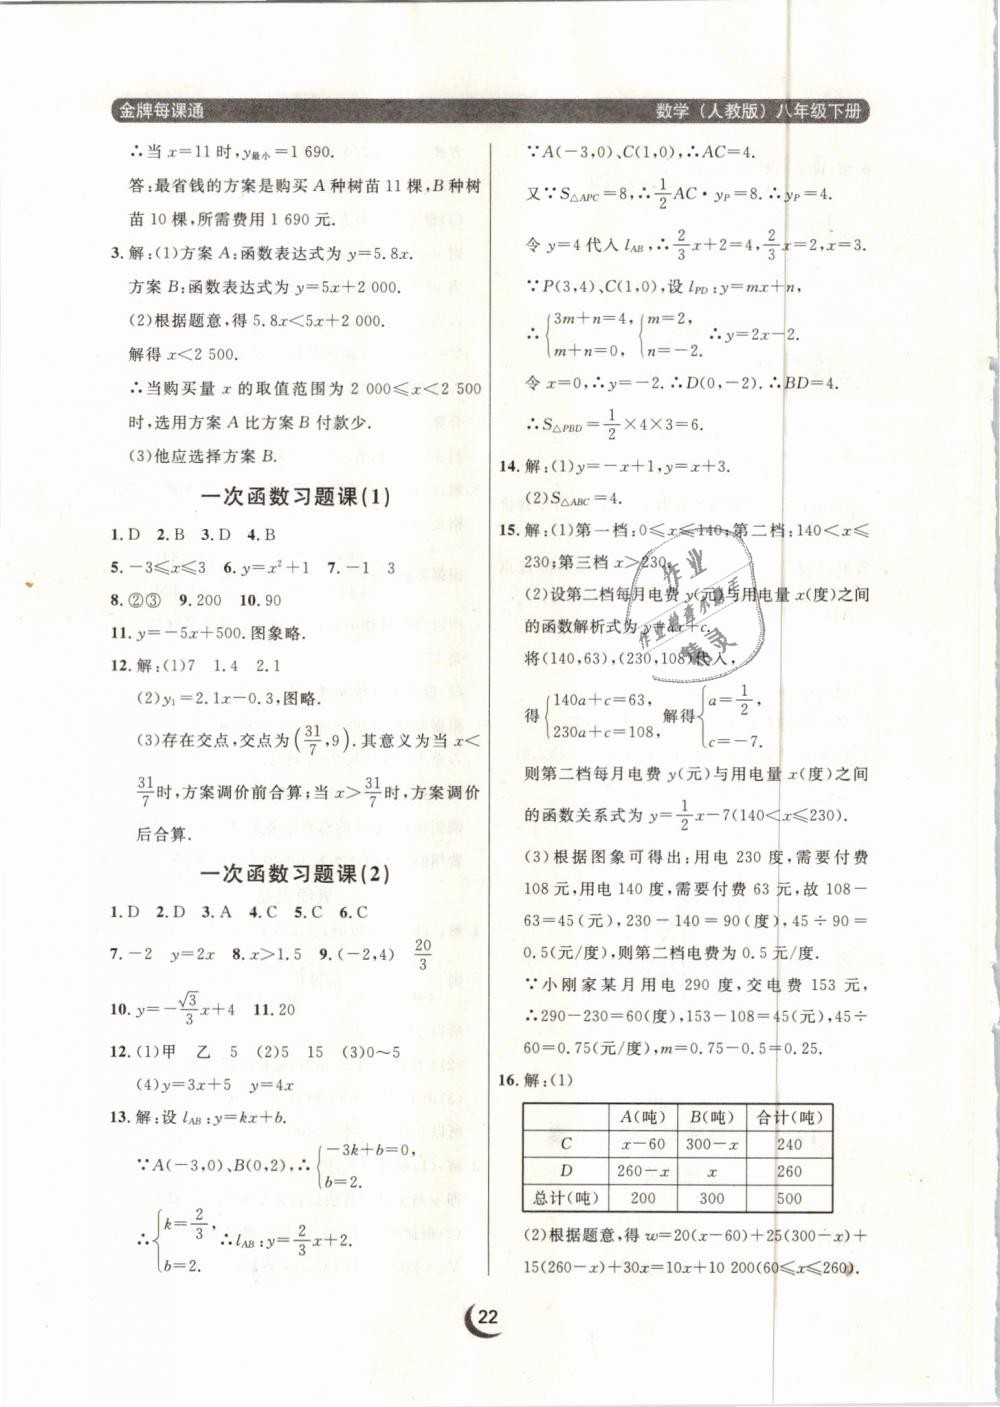 金牌每课通
数学（人教版）八年级下册
∴当 x=11 时,y最小=1 690.
答:最省钱的方案是购买 A 种树苗 11 棵,B 种树
苗 10 棵,所需费用 1 690 元.
3.解:(1)方案 A:函数表达式为 y=5.8x.
方案 B:函数表达式为 y=5x+2 000.
(2)根据题意,得 5.8x<5x+2 000.
解得 x<2 500.
∴当购买量 x 的取值范围为 2 000≤x<2 500
时,选用方案 A 比方案 B 付款少.
(3)他应选择方案 B.
一次函数习题课(1)
1.D 2.B 3.D 4.B
5.-3≤x≤3 6.y=x²+1 7.-1 3
8.②③ 9.200 10.90
11.y=-5x+500.图象略.
12.解:(1)7 1.4 2.1
(2)y₁=2.1x-0.3,图略.
(3)存在交点,交点为(31/7,9).其意义为当 x<
31/7时,方案调价前合算;当 x>31/7时,方案调价
后合算.
一次函数习题课(2)
1.D 2.D 3.A 4.C 5.C 6.C
7.-2 y=2x 8.x>1.5 9.(-2,4) 20/3
10.y=-√3/3x+4 11.20
12.(1)甲 乙 5 (2)5 15 (3)0~5
(4)y=3x+5 y=4x
13.解:设 lAB:y=kx+b.
∵A(-3,0)、B(0,2),∴{-3k+b=0, b=2.
∴{k=2/3, b=2. ∴lAB:y=2/3x+2.
∵A(-3,0)、C(1,0),∴AC=4.
又∵S△APC=8,∴1/2AC·yP=8.∴yP=4.
令 y=4 代入 lAB,∴2/3x+2=4,2/3x=2,x=3.
∵P(3,4)、C(1,0),设 lPD:y=mx+n,
∴{3m+n=4, m+n=0, {m=2, n=-2. ∴y=2x-2.
令 x=0,∴y=-2.∴D(0,-2).∴BD=4.
∴S△PBD=1/2×4×3=6.
14.解:(1)y=-x+1,y=x+3.
(2)S△ABC=4.
15.解:(1)第一档:0≤x≤140;第二档:140<x≤
230;第三档 x>230.
(2)设第二档每月电费 y(元)与用电量 x(度)之间
的函数解析式为 y=ax+c.
将(140,63),(230,108)代入,
得{140a+c=63, 230a+c=108, 解得{a=1/2, c=-7.
则第二档每月电费 y(元)与用电量 x(度)之间
的函数关系式为 y=1/2x-7(140<x≤230).
(3)根据图象可得出:用电 230 度,需要付费
108 元,用电 140 度,需要付费 63 元,故 108-
63=45(元),230-140=90(度),45÷90=
0.5(元/度),则第二档电费为 0.5 元/度.
∵小刚家某月用电 290 度,交电费 153 元,
∴290-230=60(度),153-108=45(元),45÷
60=0.75(元/度),m=0.75-0.5=0.25.
16.解:(1)
A(吨) B(吨) 合计(吨)
C x-60 300-x 240
D 260-x x 260
总计(吨) 200 300 500
(2)根据题意,得 w=20(x-60)+25(300-x)+
15(260-x)+30x=10x+10 200(60≤x≤260).
作业
作业检查小助手
精灵
22